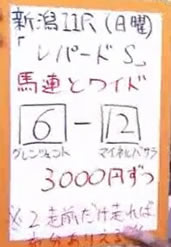 新潟11R(日曜)
「レパードS」
馬連とワイド
6-2
グレンツェント マイネルバサラ
3000円ずつ
※2走前だけ走れば
十分ありえる